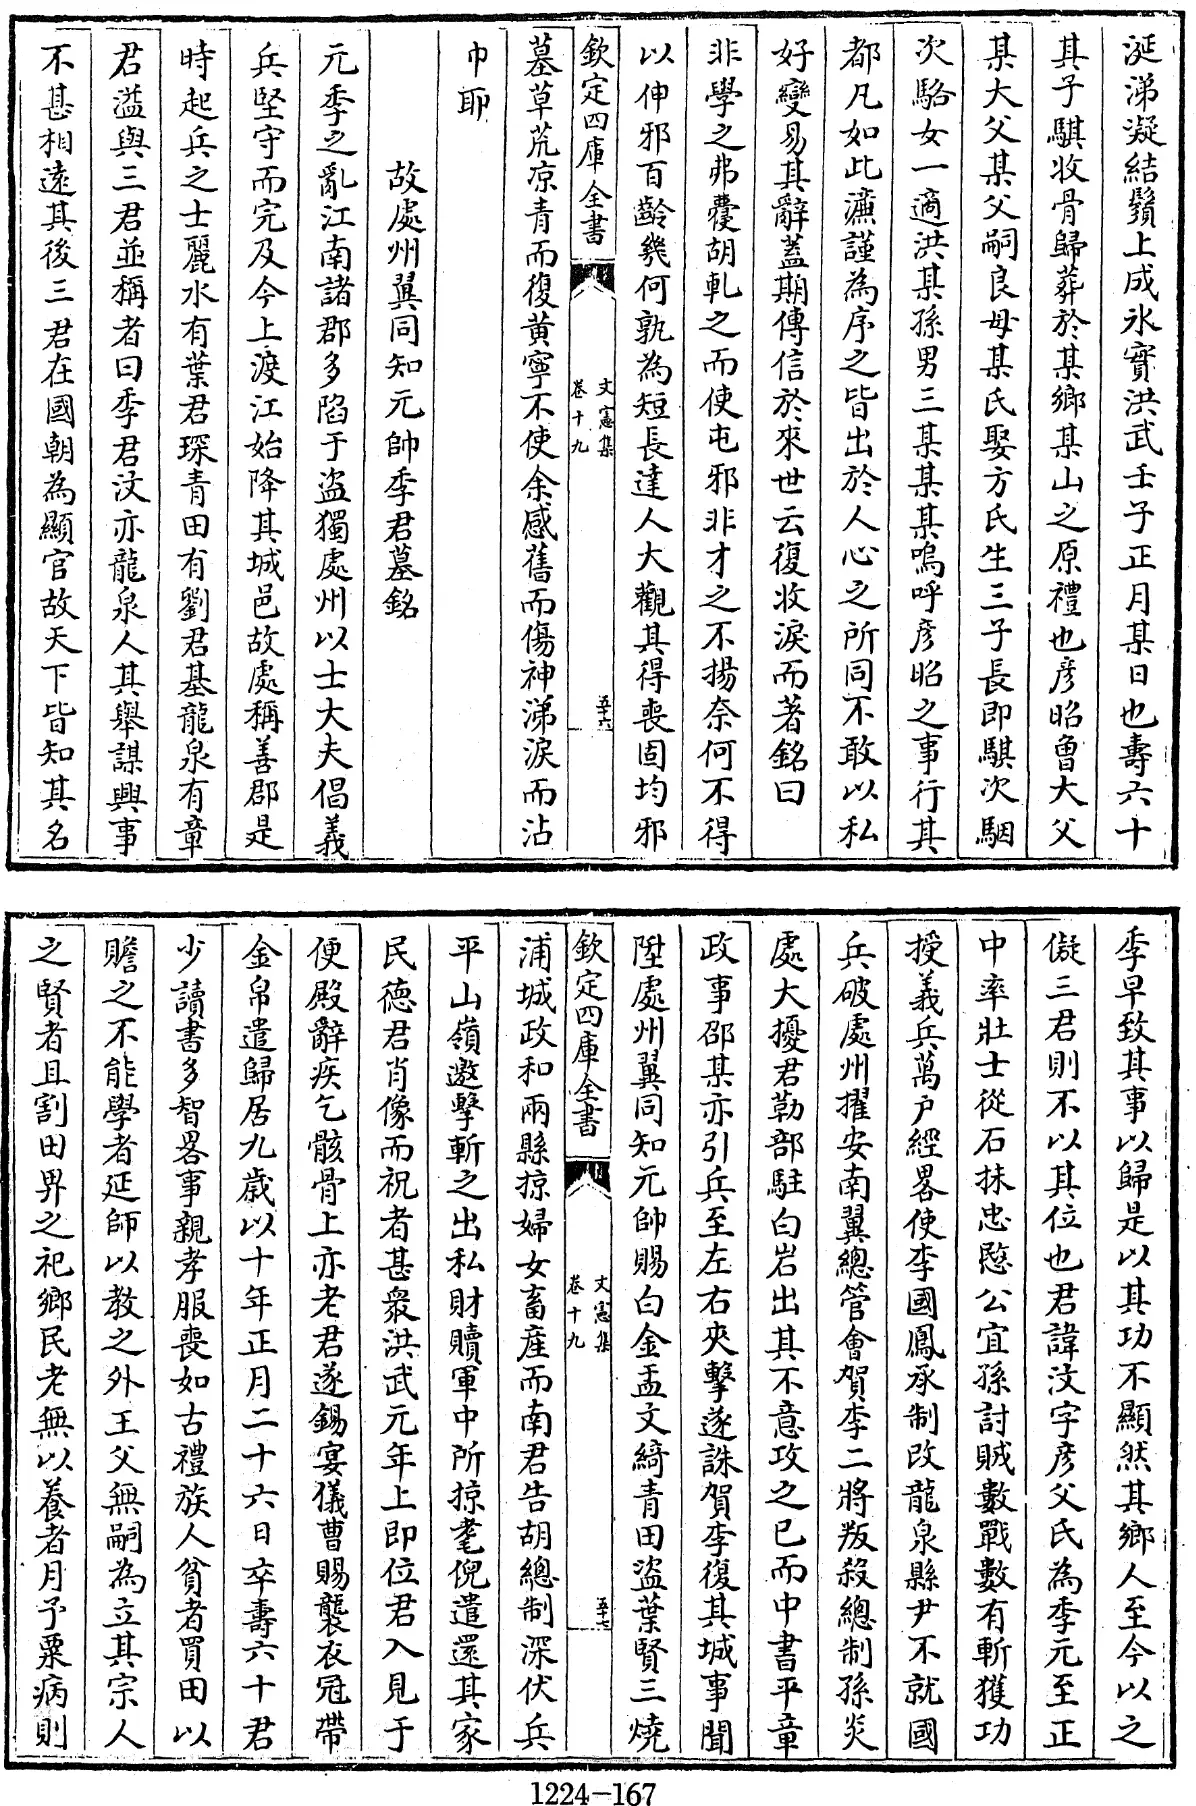 涎涕凝結鬚上成氷實洪武壬子正月某日也壽六十
其子騏收骨歸葬於某鄉某山之原禮也彦昭曾大父
某大父某父嗣良母某氏娶方氏生三子長即騏次駰
次駱女一適洪某孫男三某某某嗚呼彦昭之事行其
都凡如此濂謹為序之皆出於人心之所同不敢以私
好變易其辭蓋期傳信於來世云復收淚而著銘曰
非學之弗䕫胡軋之而使屯邪非才之不揚奈何不得
以伸邪百齡幾何孰為短長達人大觀其得喪固均邪
欽定四庫全書
文憲集
卷十九
五十六
墓草荒凉青而復黄寧不使余感舊而傷神涕淚而沾
巾耶
故處州翼同知元帥季君墓銘
元季之亂江南諸郡多陷于盗獨處州以士大夫倡義
兵堅守而完及今上渡江始降其城邑故處稱善郡是
時起兵之士麗水有葉君琛青田有劉君基龍泉有章
君溢與三君並稱者曰季君汶亦龍泉人其舉謀興事
不甚相遠其後三君在國朝為顯官故天下皆知其名
季早致其事以歸是以其功不顯然其鄉人至今以之
儗三君則不以其位也君諱汶字彦父氏為季元至正
中率壯士從石抹忠愍公宜孫討賊數戰數有斬獲功
授義兵萬户經畧使李國鳳承制改龍泉縣尹不就國
兵破處州擢安南翼總管會賀李二將叛殺總制孫炎
處大擾君勒部駐白岩出其不意攻之已而中書平章
政事邵某亦引兵至左右夾擊遂誅賀李復其城事聞
陞處州翼同知元帥賜白金盂文綺青田盗葉賢三燒
欽定四庫全書
文憲集
卷十九
五十七
浦城政和兩縣掠婦女畜産而南君告胡總制深伏兵
平山嶺邀擊斬之出私財贖軍中所掠耄倪遣還其家
民德君肖像而祝者甚衆洪武元年上即位君入見于
便殿辭疾乞骸骨上亦老君遂錫宴儀曹賜襲衣冠帶
金帛遣歸居九歲以十年正月二十六日卒壽六十君
少讀書多智畧事親孝服喪如古禮族人貧者買田以
贍之不能學者延師以教之外王父無嗣為立其宗人
之賢者且割田畀之祀鄉民老無以養者月予粟病則
1224-167